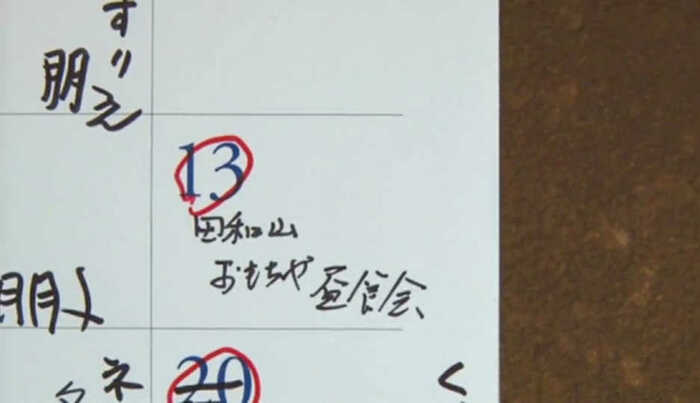 すり
朋え
13
田和山
おもちゃ 昼食会
朋人
ネ
20
く